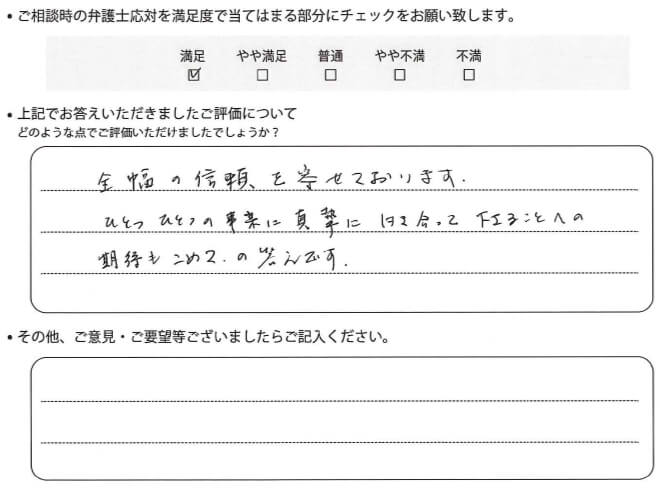 • ご相談時の弁護士応対を満足度で当てはまる部分にチェックをお願い致します。
満足 やや満足 普通 やや不満 不満
☑ ☐ ☐ ☐ ☐
• 上記でお答えいただきましたご評価について
どのような点でご評価いただけましたでしょうか？
全幅の信頼を寄せております.
ひとつひとつの事案に真摯に向き合って下さることへの
期待もこめて.の答えです.
• その他、ご意見・ご要望等ございましたらご記入ください。